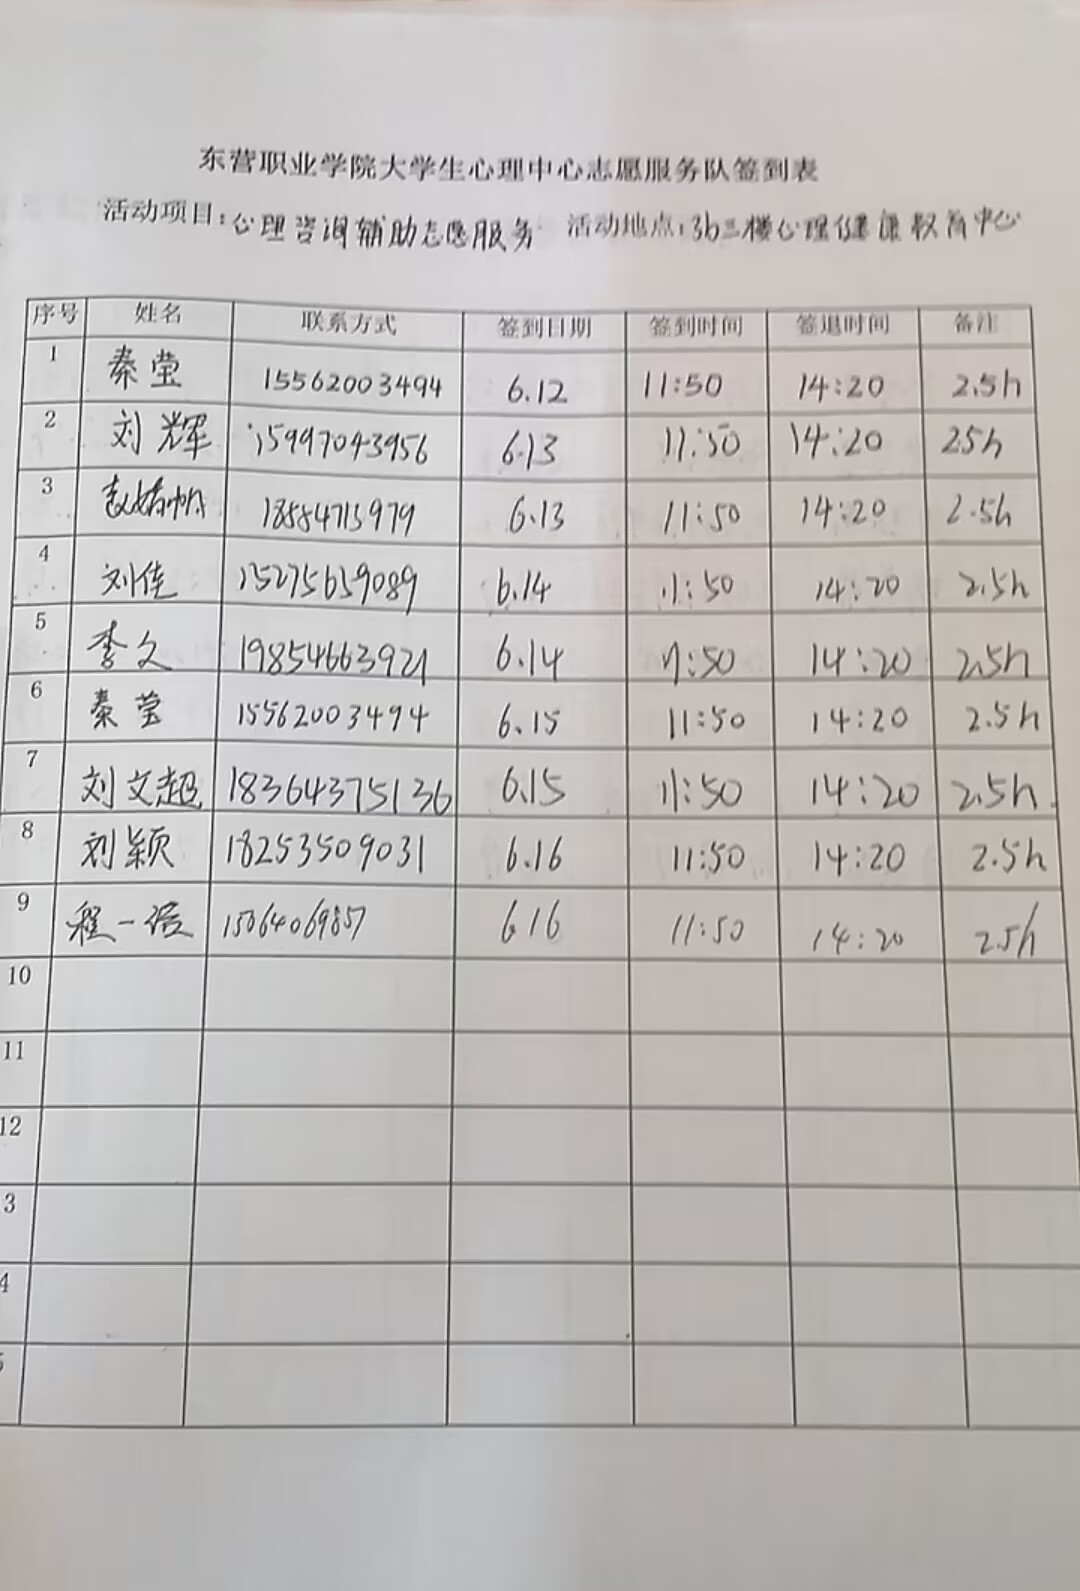 东营职业学院大学生心理中心志愿服务队签到表
活动项目:心理咨询辅助志愿服务 活动地点:3b三楼心理健康教育中心
序号 姓名 联系方式 签到日期 签到时间 签退时间 备注
1 秦莹 15562003494 6.12 11:50 14:20 2.5h
2 刘辉 15997043956 6.13 11:50 14:20 2.5h
3 赵婧帆 18554713979 6.13 11:50 14:20 2.5h
4 刘佳 15275659089 6.14 11:50 14:20 2.5h
5 李文 19854663921 6.14 11:50 14:20 2.5h
6 秦莹 15562003494 6.15 11:50 14:20 2.5h
7 刘文超 18364375136 6.15 11:50 14:20 2.5h
8 刘颖 18253509031 6.16 11:50 14:20 2.5h
9 程一诺 15064069857 6.16 11:50 14:20 2.5h
10
11
12
3
4
5